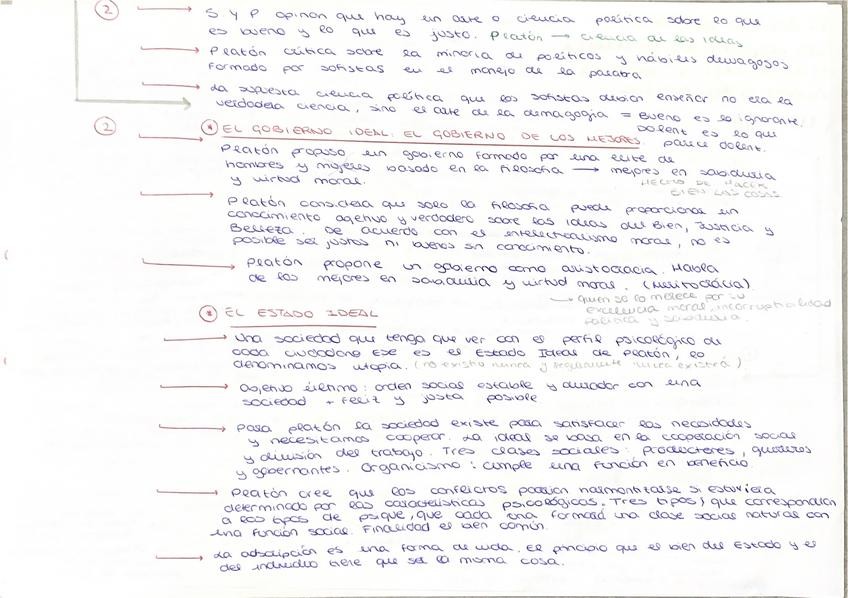 2
S y P opinan que hay un arte o ciencia política sobre lo que
es bueno y lo que es justo. Platón → ciencia de las ideas
Platón critica sobre la minoria de políticos y hábiles demagogos
formado por sofistas en el manejo de la palabra
La supuesta ciencia política que los sofistas debian enseñar no era la
verdadera ciencia, sino el arte de la demagogia = Bueno es lo ignorante.
Dolent es lo que
parece dolent.
2
* EL GOBIERNO IDEAL: EL GOBIERNO DE LOS MEJORES
Platón propuso un gobierno formado por una elite de
hombres y mujeres basado en la filosofía → mejores en sabiduria
y virtud moral.
HECHO DE HACER
BIEN LAS COSAS
Platón considera que solo la filosofía puede proporcionar un
conocimiento objetivo y verdadero sobre las ideas del Bien, Justicia y
Belleza. De acuerdo con el intelectualismo moral, no es
posible ser justos ni buenos sin conocimiento.
Platón propone un gobierno como aristocracia. Habla
de los mejores en sabiduria y virtud moral. (Meritocràcia).
→ quien se lo merece por su
excelencia moral, incorruptibilidad
política y sabiduria.
* EL ESTADO IDEAL
Una sociedad que tenga que ver con el perfil psicológico de
cada ciudadano ese es el Estado Ideal de Platón, lo
denominamos utopia. (no existió nunca y seguramente nunca existirá)
Objetivo último: orden social estable y durador con una
sociedad + feliz y justa posible
Para platón la sociedad existe para satisfacer las necesidades
y necesitamos cooperar. La ideal se basa en la cooperación social
y división del trabajo. Tres clases sociales: productores, guerreros
y gobernantes. Organicismo: cumple una función en beneficio
Platón cree que los conflictos podrían harmonitzarse si estuviera
determinado por las características psicológicas. Tres tipos, que correspondían
a los tipos de psique, que cada una formará una clase social natural con
una función social. Finalidad el bien común.
La adscripción es una forma de vida. El principio que el bien del Estado y el
del individuo tiene que ser la misma cosa.